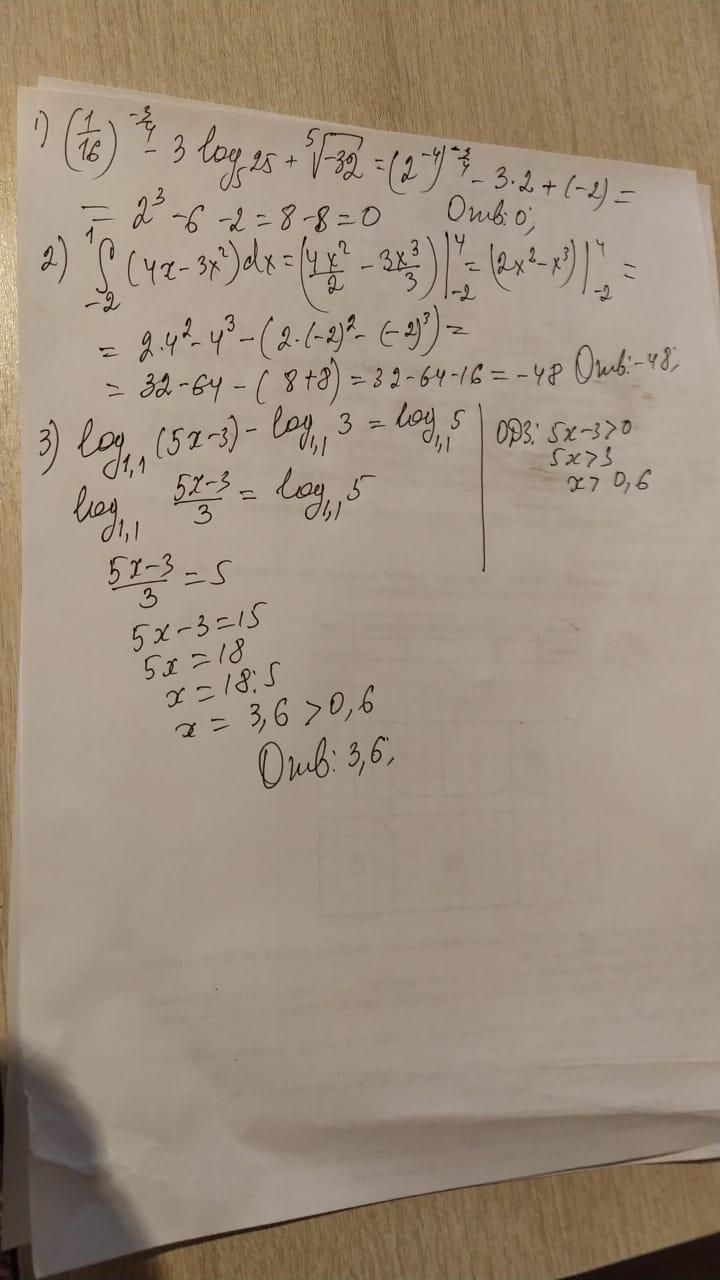 1) (1/16)^(-3/4) - 3 log₅25 + ⁵√-32 = (2⁻⁴)^(-3/4) - 3·2 + (-2) =
= 2³ - 6 - 2 = 8 - 8 = 0 Отв: 0;
2) ∫₋₂¹ (4x - 3x²)dx = (4x²/2 - 3x³/3)|₋₂⁴ = (2x² - x³)|₋₂⁴ =
= 2·4² - 4³ - (2·(-2)² - (-2)³) =
= 32 - 64 - (8+8) = 32 - 64 - 16 = -48 Отв: -48;
3) log₁,₁ (5x-3) - log₁,₁ 3 = log₁,₁ 5
log₁,₁ (5x-3)/3 = log₁,₁ 5
(5x-3)/3 = 5
5x - 3 = 15
5x = 18
x = 18:5
x = 3,6 > 0,6
Отв: 3,6;
ОДЗ: 5x-3>0
5x>3
x > 0,6